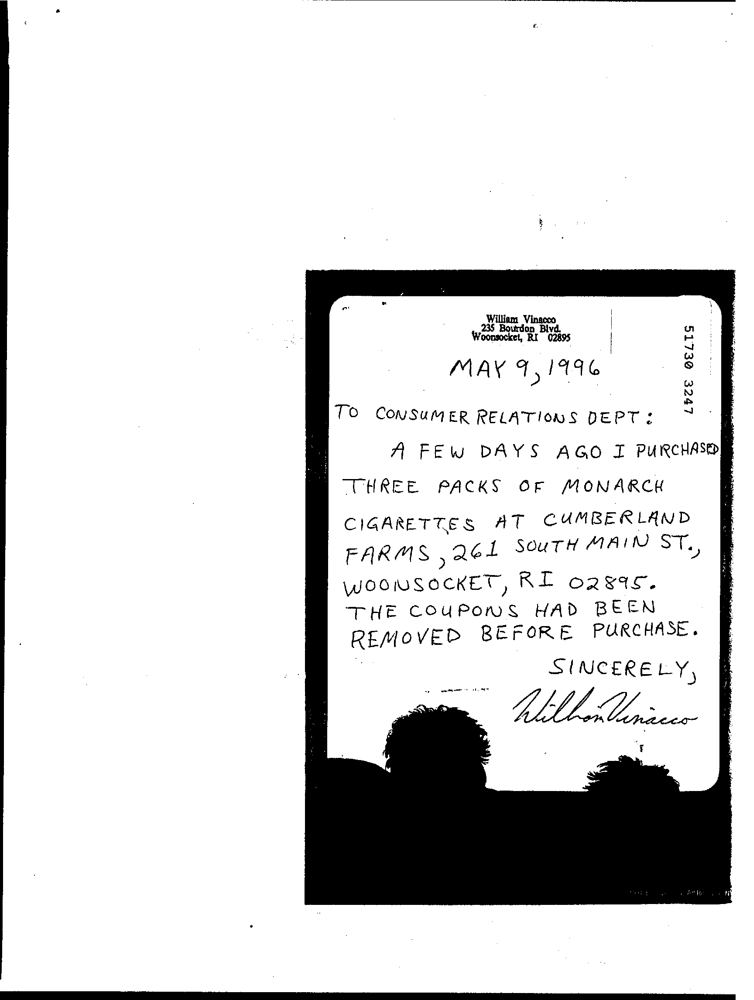 William Vinacco
235 Bourdon Blvd.
Woonsocket, RI 02895
MAY 9, 1996
51730 3247
TO CONSUMER RELATIONS DEPT:
A FEW DAYS AGO I PURCHASED
THREE PACKS OF MONARCH
CIGARETTES AT CUMBERLAND
FARMS, 261 SOUTH MAIN ST.,
WOONSOCKET, RI 02895.
THE COUPONS HAD BEEN
REMOVED BEFORE PURCHASE.
SINCERELY,
William Vinacco